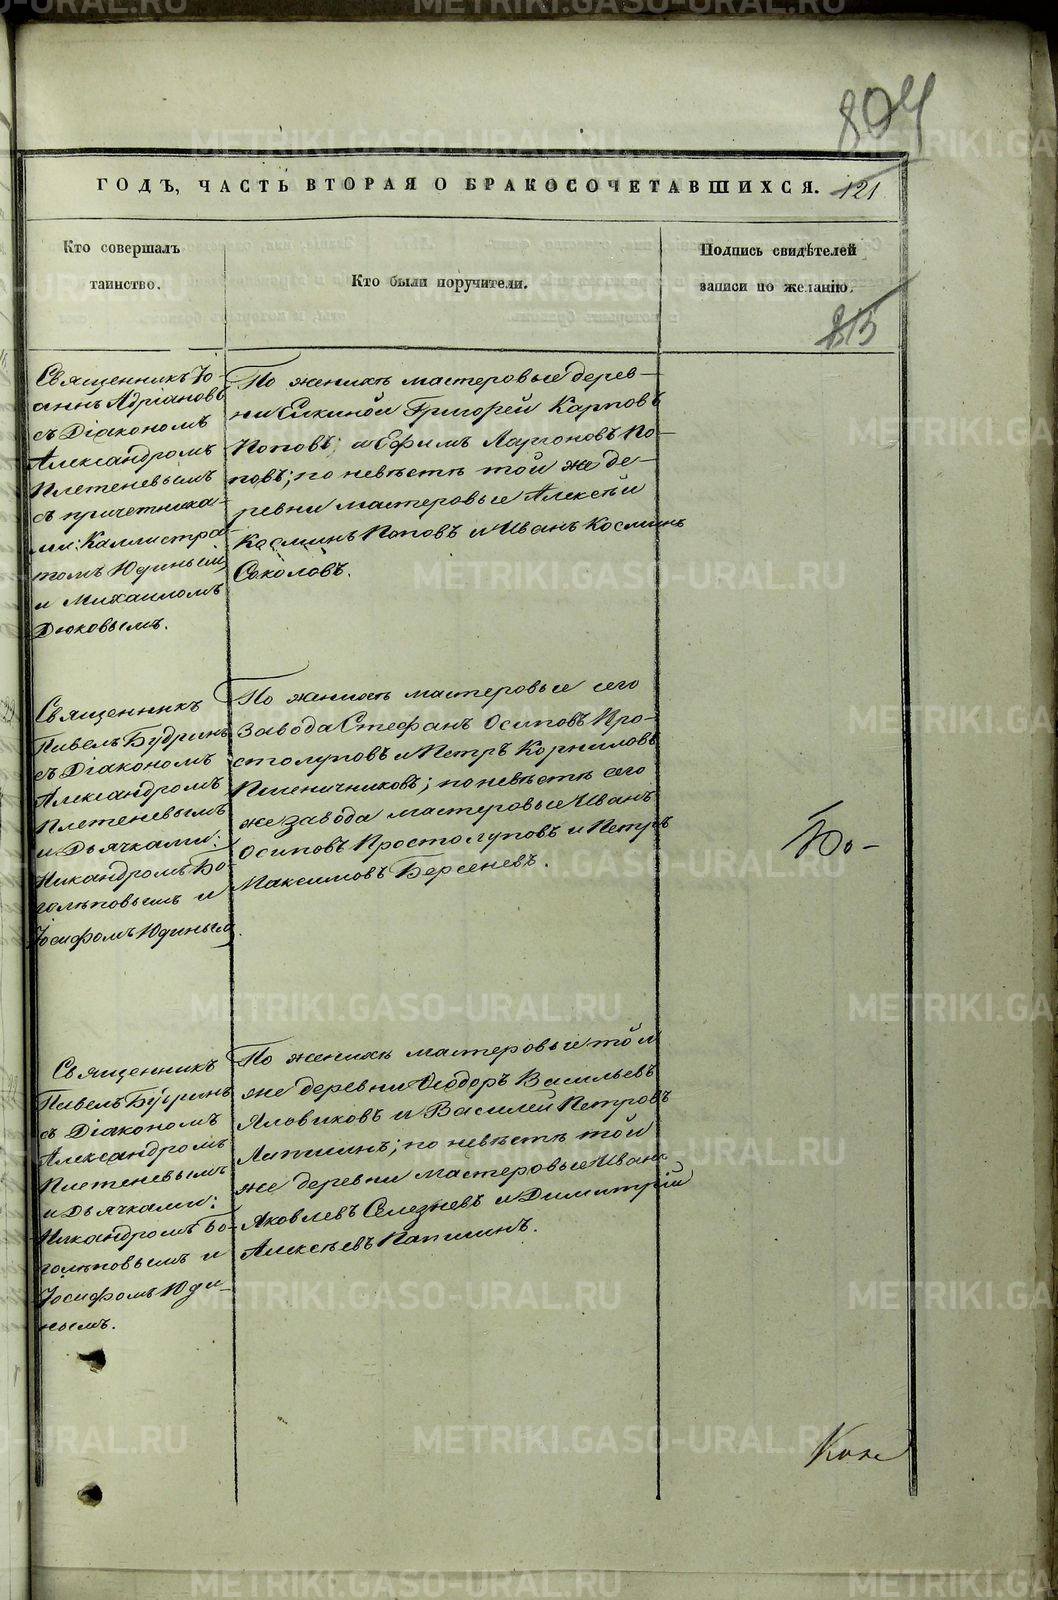 804
ГОДЪ, ЧАСТЬ ВТОРАЯ О БРАКОСОЧЕТАВШИХСЯ. 121
Кто совершалъ
таинство.
Кто были поручители.
Подпись свидѣтелей
записи по желанію.
Священникъ Іо-
аннъ Адріановъ
съ Діакономъ
Александромъ
Плетеневымъ
съ причетника-
ми: Каллистра-
томъ Юдинымъ
и Михаиломъ
Дюковымъ.
По женихѣ мастеровые дерев-
ни Елкиной Григорей Карповъ
Поповъ, и Ефимъ Ларіоновъ По-
повъ; по невѣстѣ той же де-
ревни мастеровые Алексѣй
Косминъ Поповъ и Иванъ Косминъ
Соколовъ.
Священникъ
Павелъ Будринъ
съ Діакономъ
Александромъ
Плетеневымъ
и Дьячками:
Никандромъ Бо-
голѣповымъ и
Іосифомъ Юдинымъ.
По женихѣ мастеровые сего
завода Стефанъ Осиповъ Про-
столуповъ и Петръ Корниловъ
Пшеничниковъ; по невѣстѣ сего
же завода мастеровые Иванъ
Осиповъ Простолуповъ и Петръ
Максимовъ Берсеневъ.
Бо-
Священникъ
Павелъ Будринъ
съ Діакономъ
Александромъ
Плетеневымъ
и Дьячками:
Никандромъ Бо-
голѣповымъ и
Іосифомъ Юди-
нымъ.
По женихѣ мастеровые той
же деревни Ѳеодоръ Васильевъ
Яловиковъ и Василей Петровъ
Папшинъ; по невѣстѣ той
же деревни мастеровые Иванъ
Яковлевъ Селезневъ и Димитрій
Алексѣевъ Папшинъ.
METRIKI.GASO-URAL.RU